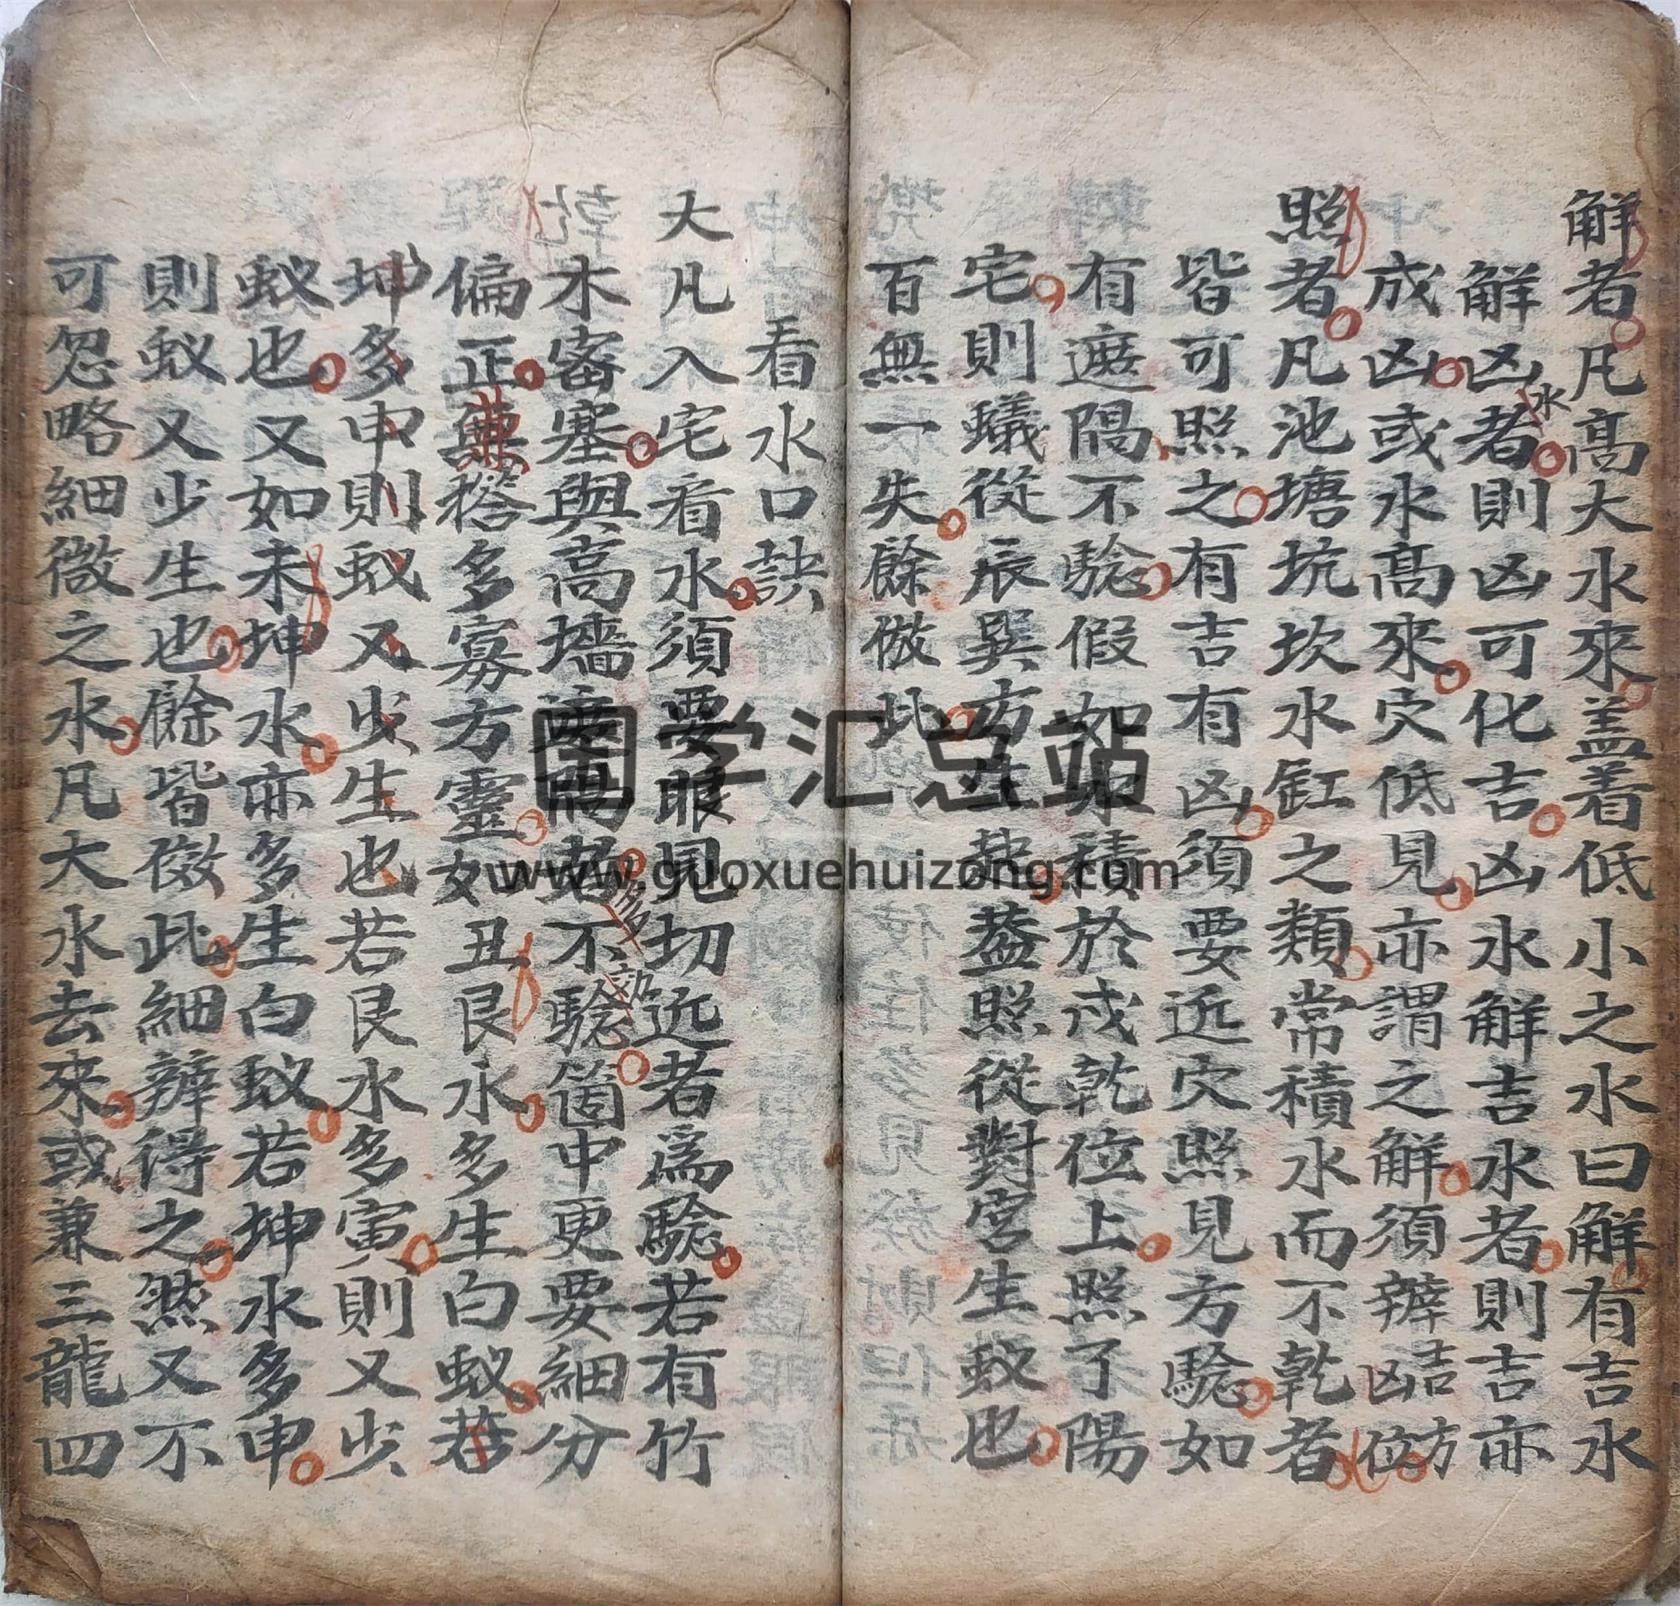 解者凡高大水來盖着低小之水曰解有吉水
解凶水者則凶可化吉凶水解吉水者則吉亦
成凶或水高來穴低見亦謂之解須辨吉凶方位
照者凡池塘坑坎水缸之類常積水而不乾者
皆可照之有吉有凶須要近穴照見方驗如
有遮隔不驗假如水積於戌乾位上照了陽
宅則蟻從辰巽方生起蓋照從對宮生蚁也
百無一失餘倣此
看水口訣
大凡入宅看水須要眼見切近者爲驗若有竹
木密塞與高墻遮隔者多不驗箇中更要細分
偏正兼搭多寡方靈如丑艮水多生白蚁若
坤多申則蚁又少生也若艮水多寅則又少
蚁也又如未坤水亦多生白蚁若坤水多申
則蚁又少生也餘皆倣此細辨得之然又不
可忽略細微之水凡大水去來或兼三龍四
国学汇总站
www.guoxuehuizong.com